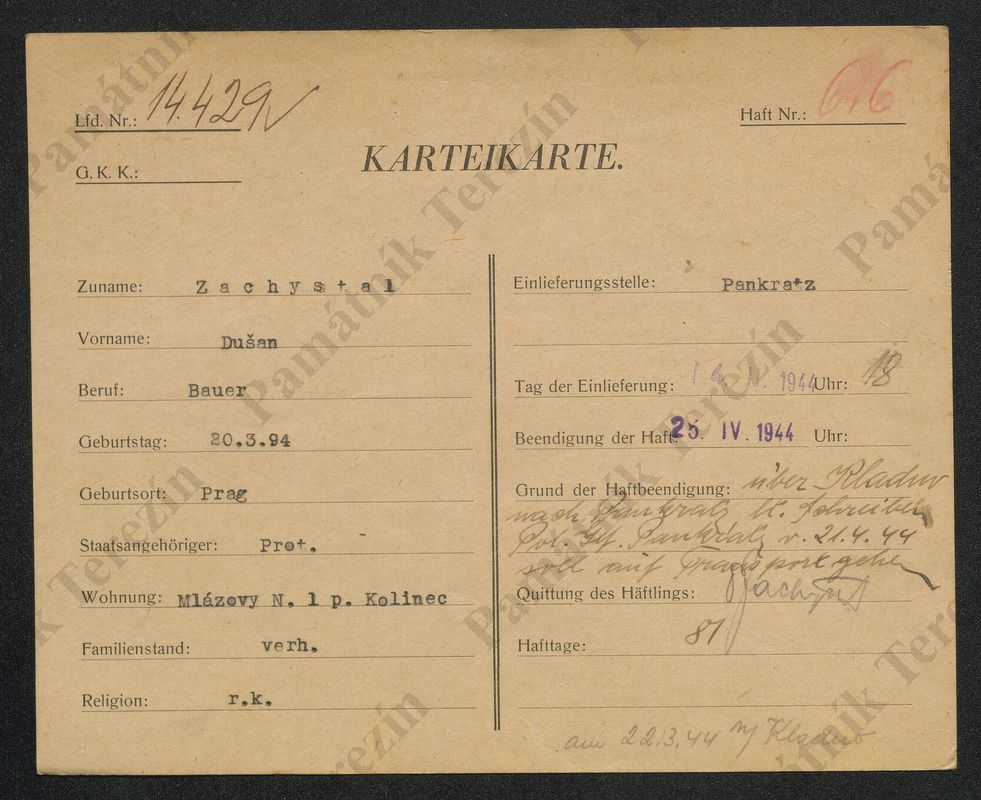 Lfd. Nr.: 14.429
Haft Nr.: 616
G. K. K.:
KARTEIKARTE.
Zuname: Zachystal
Vorname: Dušan
Beruf: Bauer
Geburtstag: 20.3.94
Geburtsort: Prag
Staatsangehöriger: Prot.
Wohnung: Mlázovy N. 1 p. Kolinec
Familienstand: verh.
Religion: r.k.
Einlieferungsstelle: Pankratz
Tag der Einlieferung: 1944 Uhr: 18
Beendigung der Haft: 25. IV. 1944 Uhr:
Grund der Haftbeendigung: über Kladno
nach Pankratz lt. Schreiben
Pol. Gef. Pankratz v. 21.4.44
soll auf Transport gehen
Quittung des Häftlings:
Hafttage: 81
am 22.3.44 Kladno
Památník Terezín